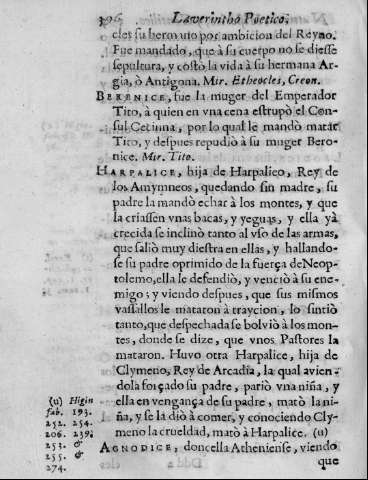 396 Laverintho Poetico;
cles su hermano por ambicion del Reyno.
Fue mandado, que à su cuerpo no se diesse
sepultura, y costò la vida à su hermana Ar-
gia, ò Antigona. Mir. Etheocles, Creon.
BERENICE, fue la muger del Emperador
Tito, à quien en vna cena estrupò el Con-
sul Cecinna, por lo qual le mandò matar
Tito, y despues repudiò à su muger Bero-
nice. Mir. Tito.
HARPALICE, hija de Harpalico, Rey de
los Amymneos, quedando sin madre, su
padre la mandò echar à los montes, y que
la criassen vnas bacas, y yeguas, y ella yà
crecida se inclinò tanto al vso de las armas,
que saliò muy diestra en ellas, y hallando-
se su padre oprimido de la fuerça de Neop-
tolemo, ella le defendiò, y venciò à su ene-
migo; y viendo despues, que sus mismos
vassallos le mataron à traycion, lo sintiò
tanto, que despechada se bolviò à los mon-
tes, donde se dize, que vnos Pastores la
mataron. Huvo otra Harpalice, hija de
Clymeno, Rey de Arcadia, la qual avien-
dola forçado su padre, pariò vna niña, y
ella en vengança de su padre, matò la ni-
ña, y se la diò à comer, y conociendo Cly-
meno la crueldad, matò à Harpalice. (u)
AGNODICE, doncella Atheniense, viendo
que
(u) Higin
fab. 193.
252. 254.
206. 239.
253. &
255. &
274.